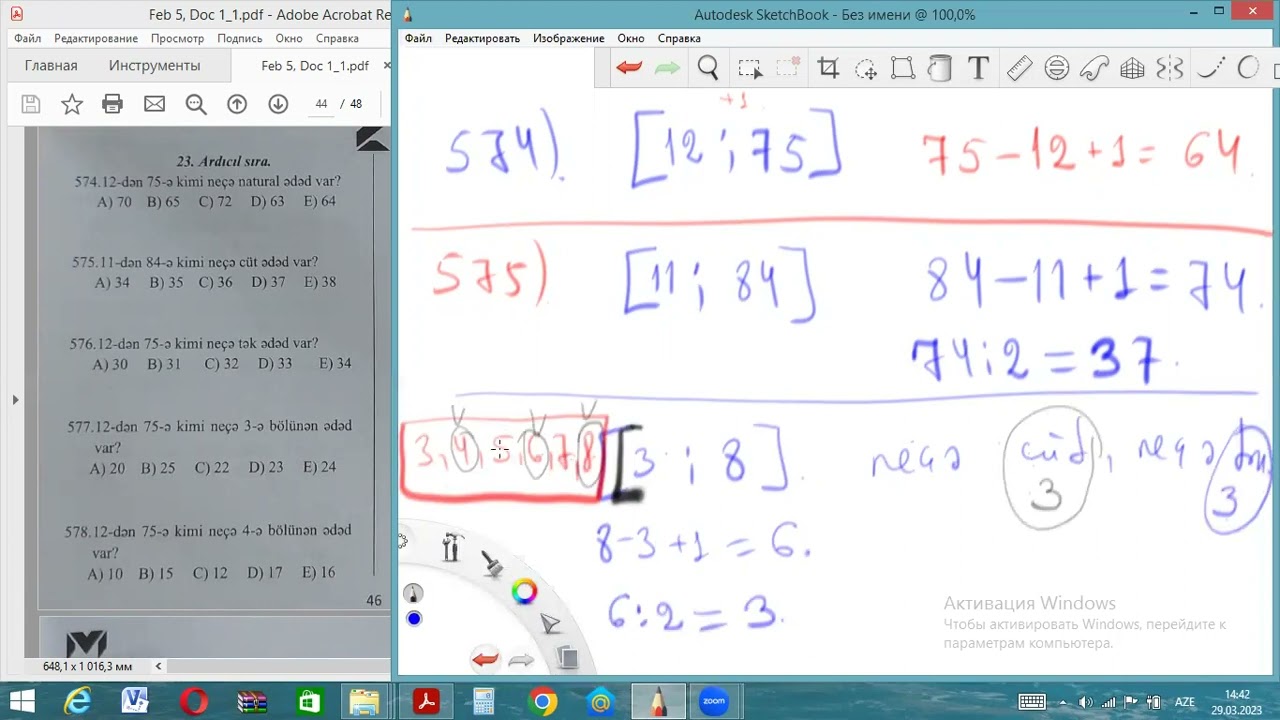 Feb 5, Doc 1_1.pdf - Adobe Acrobat Re
Файл Редактирование Просмотр Подпись Окно Справка
Главная Инструменты Feb 5, Doc 1_1.pdf ×
44 / 48
23. Ardıcıl sıra.
574.12-dən 75-ə kimi neçə natural ədəd var?
A) 70 B) 65 C) 72 D) 63 E) 64
575.11-dən 84-ə kimi neçə cüt ədəd var?
A) 34 B) 35 C) 36 D) 37 E) 38
576.12-dən 75-ə kimi neçə tək ədəd var?
A) 30 B) 31 C) 32 D) 33 E) 34
577.12-dən 75-ə kimi neçə 3-ə bölünən ədəd
var?
A) 20 B) 25 C) 22 D) 23 E) 24
578.12-dən 75-ə kimi neçə 4-ə bölünən ədəd
var?
A) 10 B) 15 C) 12 D) 17 E) 16
46
648,1 x 1 016,3 мм
Autodesk SketchBook - Без имени @ 100,0%
Файл Редактировать Изображение Окно Справка
+1
574). [12 ; 75] 75-12+1= 64
575) [11 ; 84] 84-11+1=74.
74:2=37.
3,4,5,6,7,8 [3 ; 8]. neçə cüt, neçə tək
3 3
8-3+1=6.
6:2=3.
Активация Windows
Чтобы активировать Windows, перейдите к
параметрам компьютера.
zoom
AZE
14:42
29.03.2023